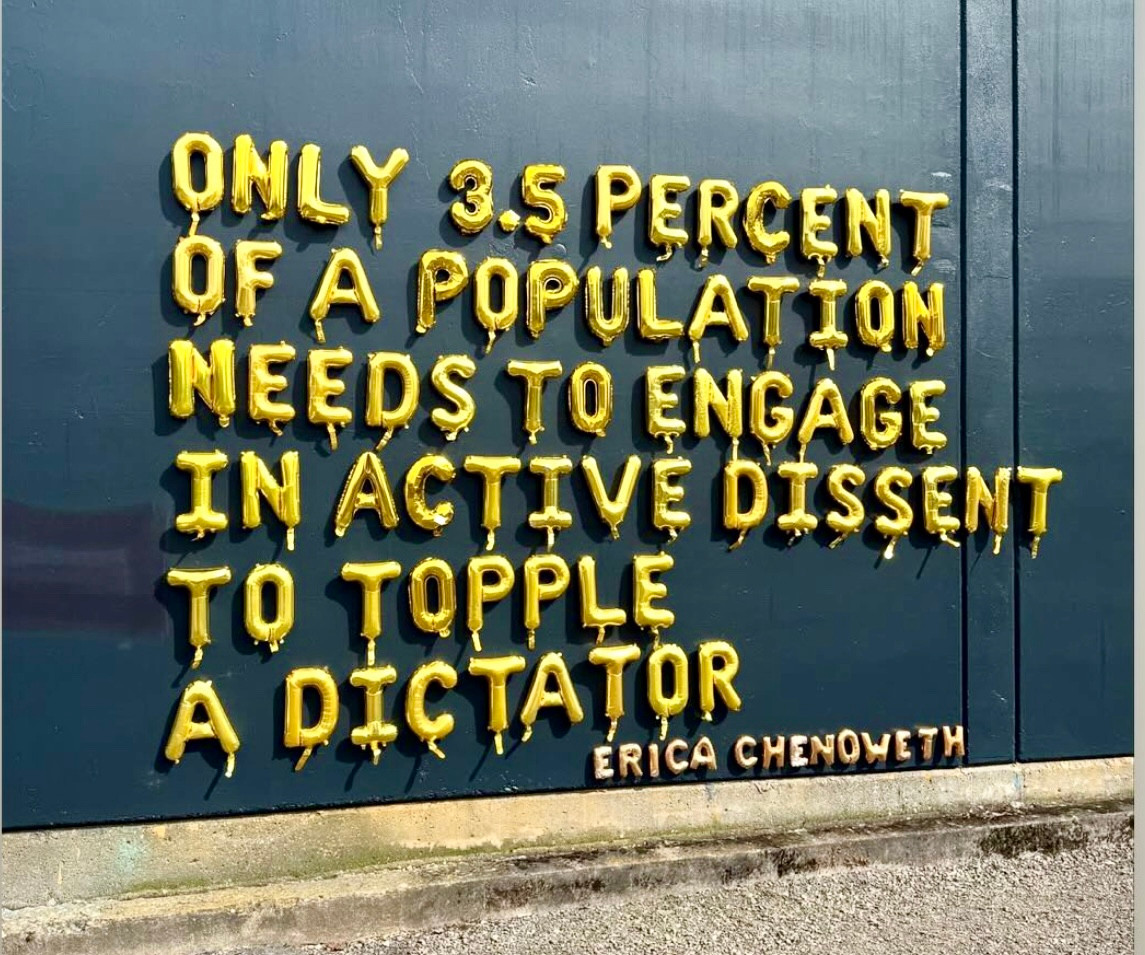 ONLY 3.5 PERCENT
OF A POPULATION
NEEDS TO ENGAGE
IN ACTIVE DISSENT
TO TOPPLE
A DICTATOR
ERICA CHENOWETH